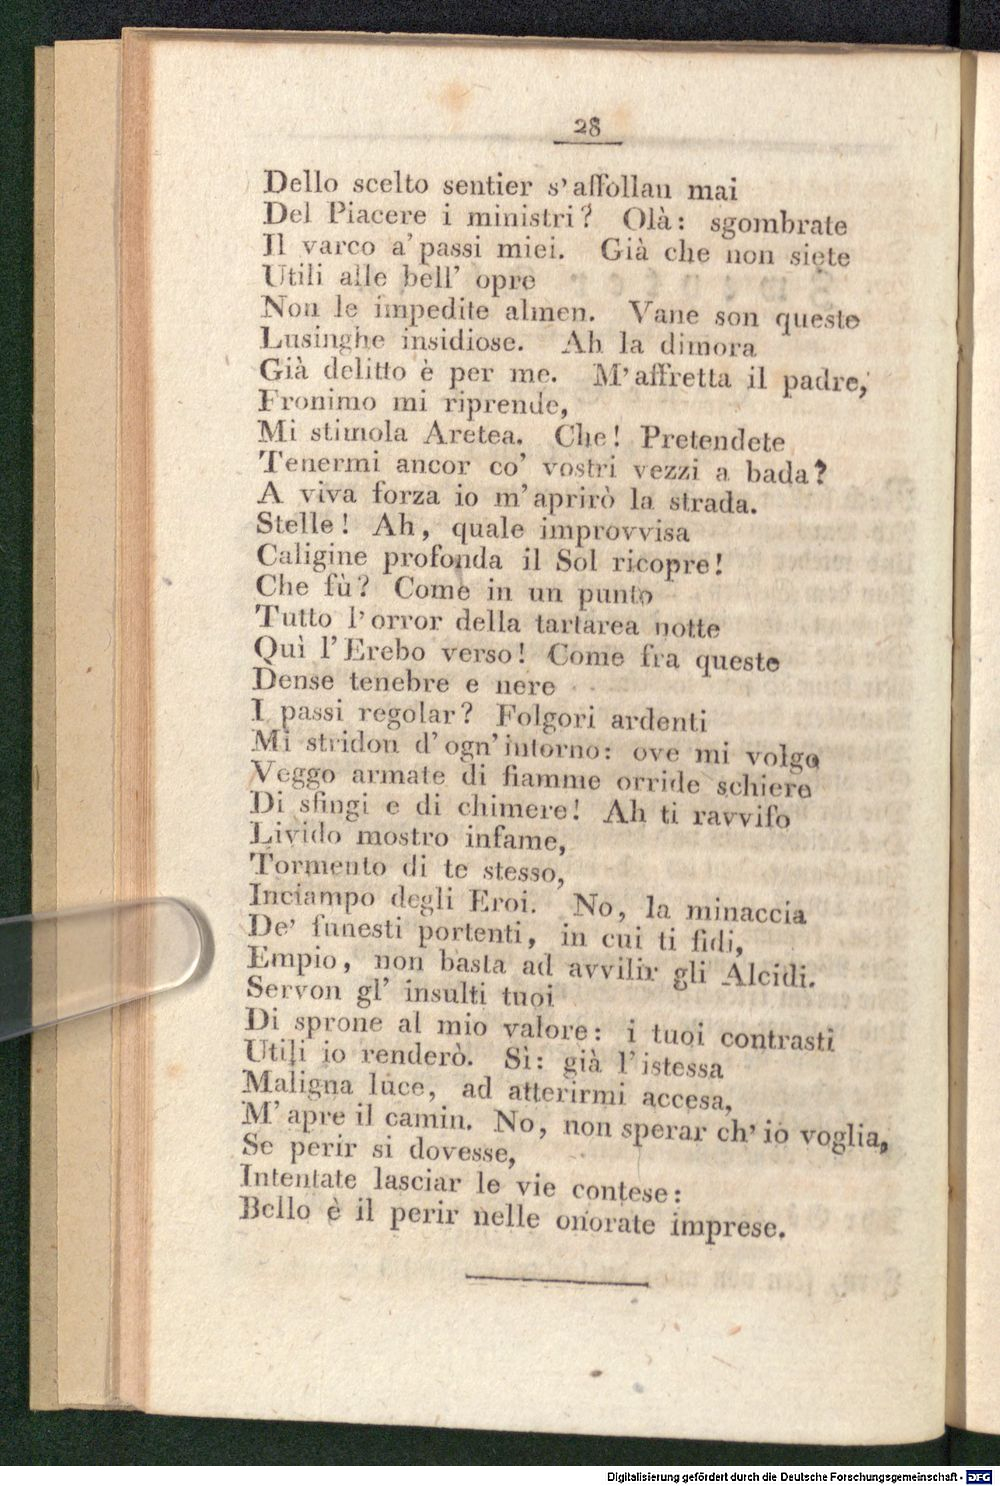 28
Dello scelto sentier s'affollan mai
Del Piacere i ministri? Olà: sgombrate
Il varco a' passi miei. Già che non siete
Utili alle bell' opre
Non le impedite almen. Vane son queste
Lusinghe insidiose. Ah la dimora
Già delitto è per me. M'affretta il padre,
Fronimo mi riprende,
Mi stimola Aretea. Che! Pretendete
Tenermi ancor co' vostri vezzi a bada?
A viva forza io m'aprirò la strada.
Stelle! Ah, quale improvvisa
Caligine profonda il Sol ricopre!
Che fù? Come in un punto
Tutto l'orror della tartarea notte
Quì l'Erebo verso! Come fra queste
Dense tenebre e nere
I passi regolar? Folgori ardenti
Mi stridon d'ogn'intorno: ove mi volgo
Veggo armate di fiamme orride schiere
Di sfingi e di chimere! Ah ti ravviso
Livido mostro infame,
Tormento di te stesso,
Inciampo degli Eroi. No, la minaccia
De' funesti portenti, in cui ti fidi,
Empio, non basta ad avvilir gli Alcidi.
Servon gl' insulti tuoi
Di sprone al mio valore: i tuoi contrasti
Utili io renderò. Sì: già l'istessa
Maligna luce, ad atterirmi accesa,
M'apre il camin. No, non sperar ch'io voglia,
Se perir si dovesse,
Intentate lasciar le vie contese:
Bello è il perir nelle onorate imprese.
Digitalisierung gefördert durch die Deutsche Forschungsgemeinschaft - DFG